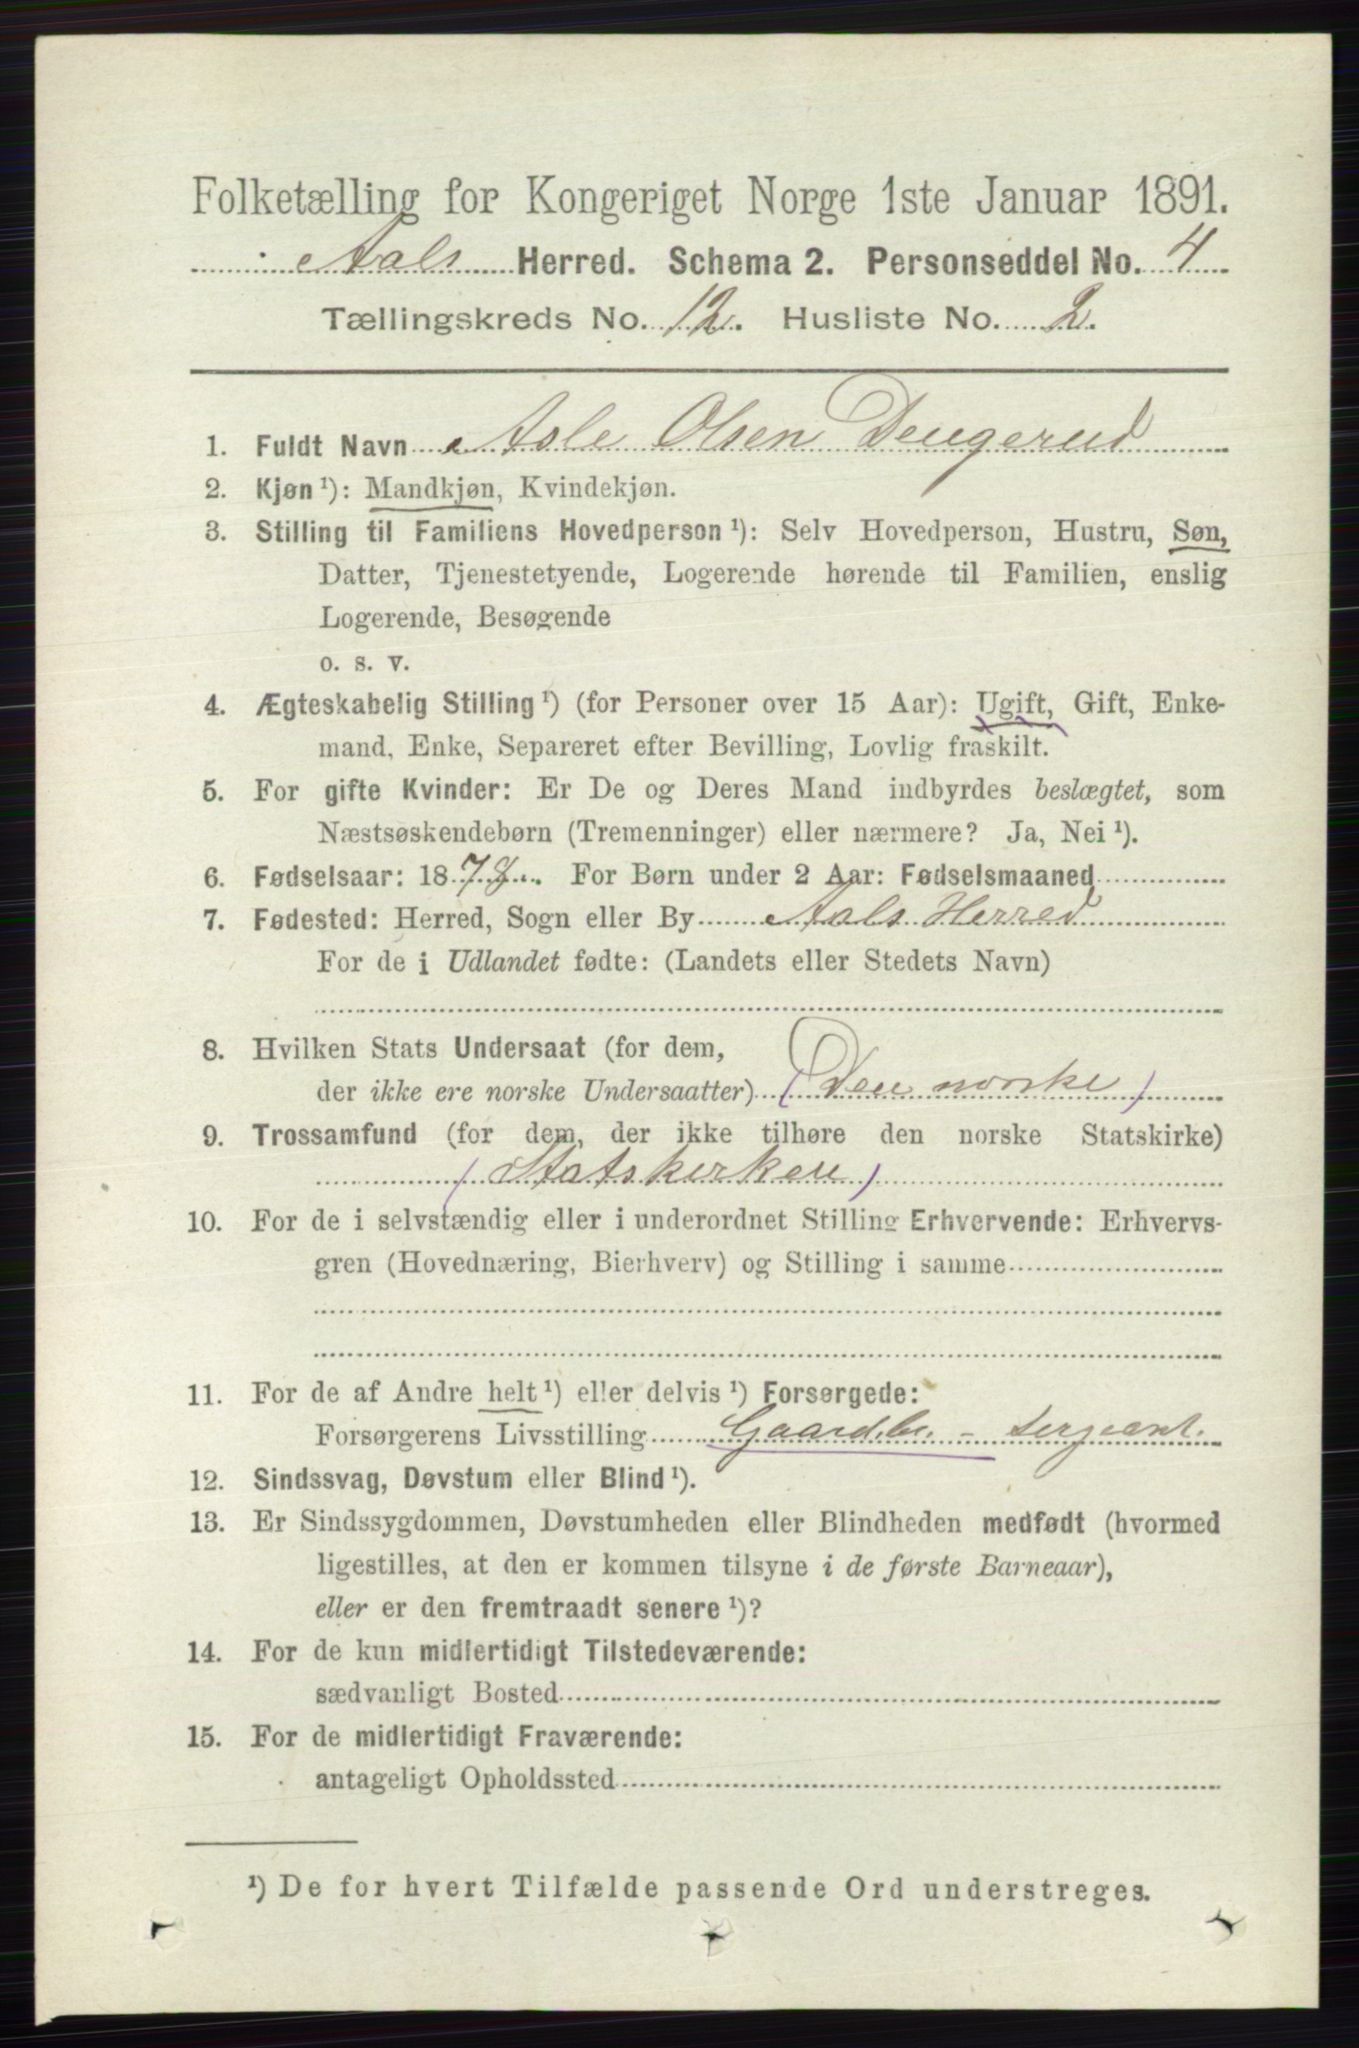 Folketælling for Kongeriget Norge 1ste Januar 1891.
Aals Herred. Schema 2. Personseddel No. 4
Tællingskreds No. 12. Husliste No. 2.
1. Fuldt Navn Asle Olsen Dengerud
2. Kjøn ¹): Mandkjøn, Kvindekjøn.
3. Stilling til Familiens Hovedperson ¹): Selv Hovedperson, Hustru, Søn,
Datter, Tjenestetyende, Logerende hørende til Familien, enslig
Logerende, Besøgende
o. s. v.
4. Ægteskabelig Stilling ¹) (for Personer over 15 Aar): Ugift, Gift, Enke-
mand, Enke, Separeret efter Bevilling, Lovlig fraskilt.
5. For gifte Kvinder: Er De og Deres Mand indbyrdes beslægtet, som
Næstsøskendebørn (Tremenninger) eller nærmere? Ja, Nei ¹).
6. Fødselsaar: 187 For Børn under 2 Aar: Fødselsmaaned
7. Fødested: Herred, Sogn eller By Aals Herred
For de i Udlandet fødte: (Landets eller Stedets Navn)
8. Hvilken Stats Undersaat (for dem,
der ikke ere norske Undersaatter) (Den norske)
9. Trossamfund (for dem, der ikke tilhøre den norske Statskirke)
(Statskirken)
10. For de i selvstændig eller i underordnet Stilling Erhvervende: Erhvervs-
gren (Hovednæring, Bierhverv) og Stilling i samme
11. For de af Andre helt ¹) eller delvis ¹) Forsørgede:
Forsørgerens Livsstilling Gaardbr. - Sergeant.
12. Sindssvag, Døvstum eller Blind ¹).
13. Er Sindssygdommen, Døvstumheden eller Blindheden medfødt (hvormed
ligestilles, at den er kommen tilsyne i de første Barneaar),
eller er den fremtraadt senere ¹)?
14. For de kun midlertidigt Tilstedeværende:
sædvanligt Bosted
15. For de midlertidigt Fraværende:
antageligt Opholdssted
¹) De for hvert Tilfælde passende Ord understreges.